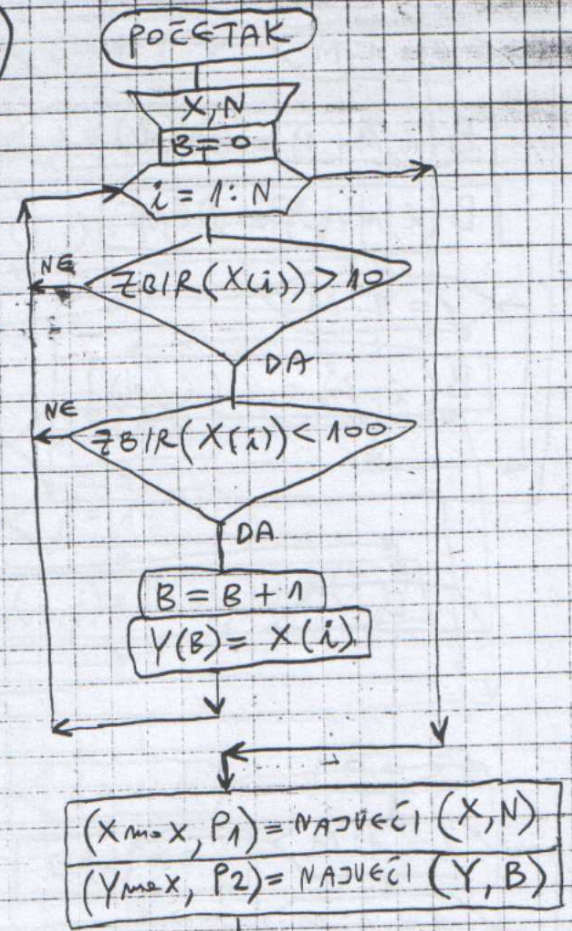 POČETAK
X, N
B = 0
i = 1 : N
NE
ZBIR(X(i)) > 10
DA
NE
ZBIR(X(i)) < 100
DA
B = B + 1
Y(B) = X(i)
(Xmax, P1) = NAJVEĆI (X, N)
(Ymax, P2) = NAJVEĆI (Y, B)